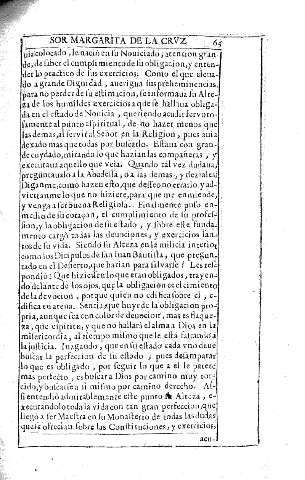 SOR MARGARITA DE LA CRVZ 65
uia colocado, le nació en su Nouiciado, atencion gran-
de, de saber el cumplimiento de su obligacion, y enten-
der lo practico de sus exercicios. Como el que eleua-
do a grande Dignidad, auerigua sus preheminencias,
para no perder de su estimacion, se informaua su Alte-
za de los humildes exercicios a que se hallaua obliga-
da en el estado de Nouicia, queriendo acudir feruoro-
samente al punto espiritual, de no hazer menos que
las demas, al seruir al Señor en la Religion, pues auia
dexado mas que todas por buscarlo. Estaua con gran-
de cuydado, mirando lo que hazian las compañeras, y
executaua aquello que veia. Quando tal vez dudaua,
preguntaualo a la Abadessa, o a las demas, y deziales:
Diganme, como hazen esto, que desseo no errarlo, y ad-
uiertanme lo que no hiziere, para que me enmiende,
y venga a ser buena Religiosa. Finalmente puso en
medio de su coraçon, el cumplimiento de su profes-
sion, y la obligacion de su estado, y sobre este funda-
mento cargò todas las deuociones, y exercicios san-
tos de su vida. Siendo su Alteza en la milicia interior
como los Dicipulos de san Iuan Bautista, que pregun-
tado en el Desierto, que harian para saluarse? Les res-
pondiò: Que hiziessen lo que eran obligados, trayen-
do delante de los ojos, que la obligacion es el cimiento
de la deuocion, porque quien no edifica sobre el, e-
difica en arena. Sentia que huyr de la obligacion pro-
pria, aunque sea con color de deuocion, mas es flaque-
za, que espiritu, y que no hallará el alma a Dios en la
misericordia, al tiempo mismo que le està faltando a
la justicia. Iuzgando, que en su estado cada vno deue
buscar la perfeccion de su estado, pues desamparar
lo que es obligado, por seguir lo que a el le parece
mas perfecto, es buscar a Dios por camino muy tor-
cido, y buscarse a si mismo por camino derecho. As-
si entendiò admirablemente este punto su Alteza, e-
xecutandolo toda la vida con tan gran perfeccion, que
llegò a ser Maestra en su Monasterio de todas las dudas
que se ofrecian sobre las Constituciones, y exercicios,